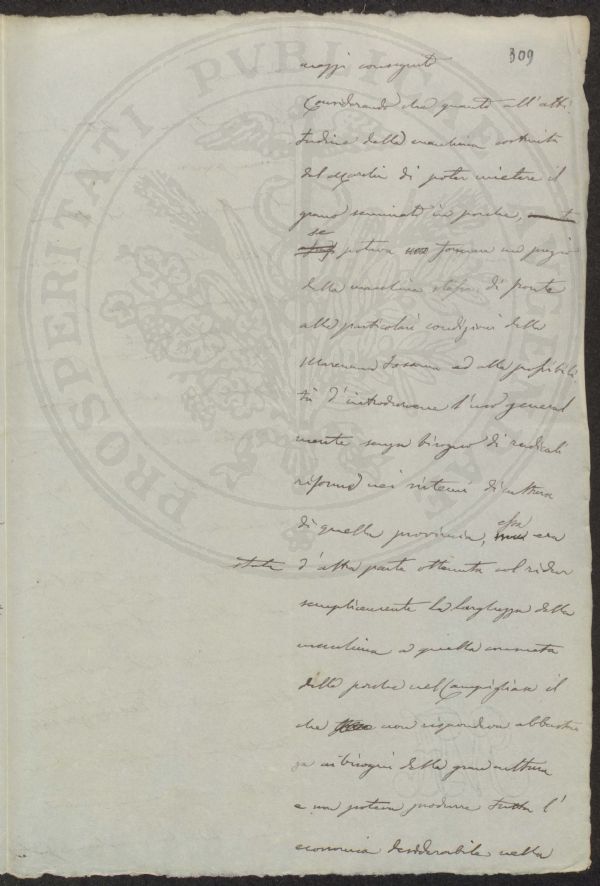 309
conseguito
Considerando che quanto all'atti
tudine della macchina costruita
dal di poter mietere il
grano seminato in porche,
se poteva formare un pregio
della macchina stessa, di fronte
alle particolari condizioni della
Maremma toscana ed alla possibili
tà d'introdurvene l'uso general
mente senza bisogno di radicali
riforme nei sistemi di cultura
di quella provincia, essa era
stata d'altra parte ottenuta col ridur
semplicemente la larghezza della
macchina a quella consueta
delle porche nel il
che non rispondeva abbastan
za ai bisogni della gran cultura
e non poteva produrre tutta l'
economia desiderabile nella
PROSPERITATI PVBLICAE AVGENDAE